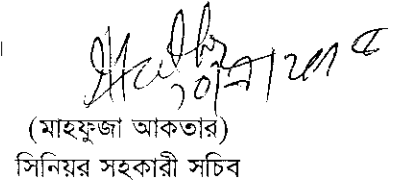 ।
(মাহফুজা আকতার)
সিনিয়র সহকারী সচিব